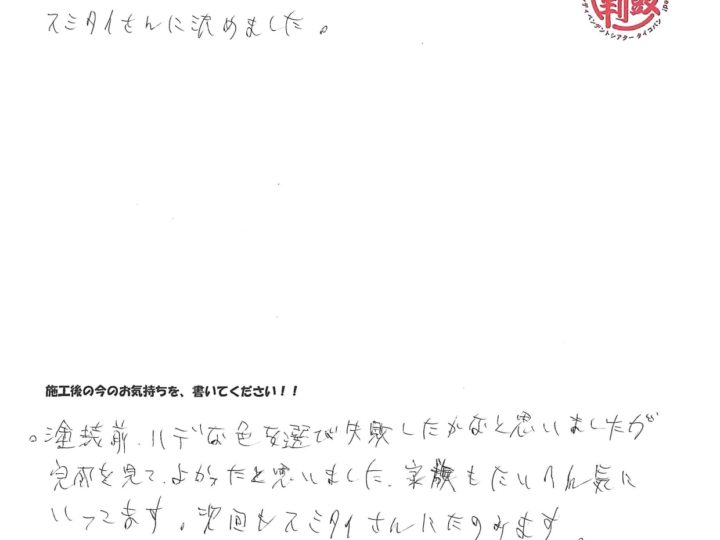 スミタイさんに決めました。
施工後の今のお気持ちを、書いてください！！
。塗装前、ハデな色を選び失敗したかなと思いましたが
完成を見て、よかったと思いました、家族もたいへん気に
いってます。次回もスミタイさんにたのみます。